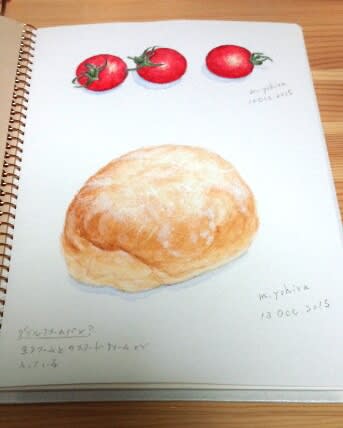 m.yohira
Oct 2015
m.yohira
13 Oct 2015
ダブルクリームパン?
生クリームとカスタードクリームが
入っている